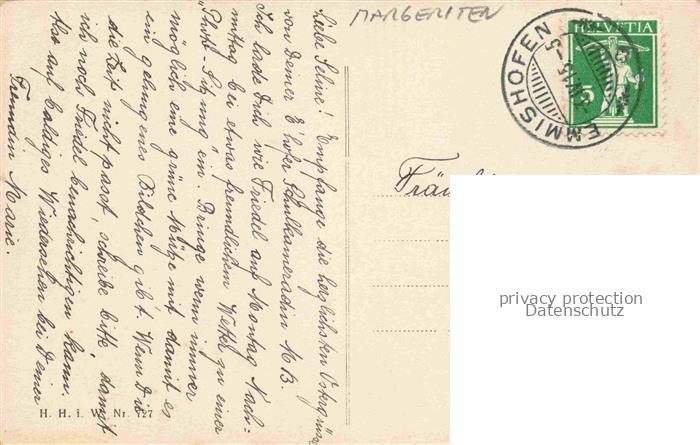 MARGERITEN
HELVETIA
5
EMMISHOFEN
Liebe Seline! Empfange die herzlichsten Ostergrüsse
von Deiner E'hofer Schulkameradin M B.
Ich lade Dich wie Friedel auf Montag Nach-
mittag bei etwas freundlichem Wetter zu einer
"Photo-Sitzung" ein. Bringe wenn immer
möglich eine grüne Mütze mit damit es
ein gelungenes Bildchen gibt. Wenn Dir
die Zeit nicht passt, schreibe bitte, damit
ich noch Friedel benachrichtigen kann.
Also auf baldiges Wiedersehen bei Deiner
Freundin Marie.
Fräu
privacy protection
Datenschutz
H. H. i. W. Nr. 727